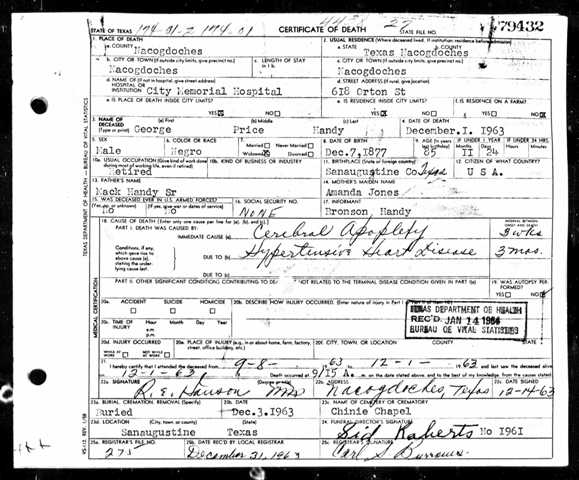 174-91-2 174-91 443 27
STATE OF TEXAS CERTIFICATE OF DEATH STATE FILE NO. 79432
1. PLACE OF DEATH 2. USUAL RESIDENCE (Where deceased lived. If institution: residence before admission)
a. COUNTY Nacogdoches a. STATE Texas b. COUNTY Nacogdoches
b. CITY OR TOWN (If outside city limits, give precinct no.) c. LENGTH OF STAY in 1b c. CITY OR TOWN (If outside city limits, give precinct no.)
Nacogdoches Nacogdoches
d. NAME OF (If not in hospital, give street address) HOSPITAL OR INSTITUTION City Memorial Hospital d. STREET ADDRESS (If rural, give location) 618 Orton St
e. IS PLACE OF DEATH INSIDE CITY LIMITS? YES NO e. IS RESIDENCE INSIDE CITY LIMITS? YES NO f. IS RESIDENCE ON A FARM? YES NO
3. NAME OF DECEASED (Type or print) (a) First (b) Middle (c) Last 4. DATE OF DEATH
George Price Handy December.I. 1963
5. SEX 6. COLOR OR RACE 7. Married Never Married Widowed Divorced 8. DATE OF BIRTH 9. AGE (In years last birthday) IF UNDER 1 YEAR IF UNDER 24 HRS.
Male Negro Dec.7,1877 85 11 24
10a. USUAL OCCUPATION (Give kind of work done 10b. KIND OF BUSINESS OR INDUSTRY 11. BIRTHPLACE (State or foreign country) 12. CITIZEN OF WHAT COUNTRY?
Retired Sanaugustine Co Texas U S A.
13. FATHER'S NAME 14. MOTHER'S MAIDEN NAME
Mack Handy Sr Amanda Jones
15. WAS DECEASED EVER IN U.S. ARMED FORCES? 16. SOCIAL SECURITY NO. 17. INFORMANT
(Yes, no, or unknown) (If yes, give war or dates of service)
no no None Bronson Handy
18. CAUSE OF DEATH [Enter only one cause per line for (a), (b), and (c).] INTERVAL BETWEEN ONSET AND DEATH
PART I. DEATH WAS CAUSED BY:
IMMEDIATE CAUSE (a) Cerebral Apoplexy 3 wks
Conditions, if any, which gave rise to above cause (a), stating the underlying cause last. DUE TO (b) Hypertensive Heart Disease 3 mos.
DUE TO (c)
PART II. OTHER SIGNIFICANT CONDITIONS CONTRIBUTING TO DEATH BUT NOT RELATED TO THE TERMINAL DISEASE CONDITION GIVEN IN PART I(a) 19. WAS AUTOPSY PERFORMED? YES NO
20a. ACCIDENT SUICIDE HOMICIDE 20b. DESCRIBE HOW INJURY OCCURRED.
20c. TIME OF INJURY Hour Month Day Year
a.m.
p.m.
TEXAS DEPARTMENT OF HEALTH
REC'D JAN 14 1964
BUREAU OF VITAL STATISTICS
20d. INJURY OCCURRED WHILE AT WORK NOT WHILE AT WORK 20e. PLACE OF INJURY (e.g., in or about home, farm, factory, street, office building, etc.) 20f. CITY, TOWN, OR LOCATION COUNTY STATE
21. I hereby certify that I attended the deceased from 9-8- 63 to 12-1- 1963 and last saw
12-1-63 Death occurred at 9/15 A m. on the date stated above, and to the best of my knowledge, from the causes stated.
22a. SIGNATURE (Degree or title) 22b. ADDRESS 22c. DATE SIGNED
MD Nacogdoches, Texas 12-14-63
23a. BURIAL, CREMATION, REMOVAL (Specify) 23b. DATE 23c. NAME OF CEMETERY OR CREMATORY
Buried Dec.3,1963 Chinie Chapel
23d. LOCATION 24. FUNERAL DIRECTOR'S SIGNATURE
Sanaugustine Texas Sid Roberts No 1961
25a. REGISTRAR'S FILE NO. 25b. DATE REC'D BY LOCAL REGISTRAR 25c. REGISTRAR'S SIGNATURE
275 December 31, 1963 Carl S Burrows
TEXAS DEPARTMENT OF HEALTH — BUREAU OF VITAL STATISTICS
MEDICAL CERTIFICATION